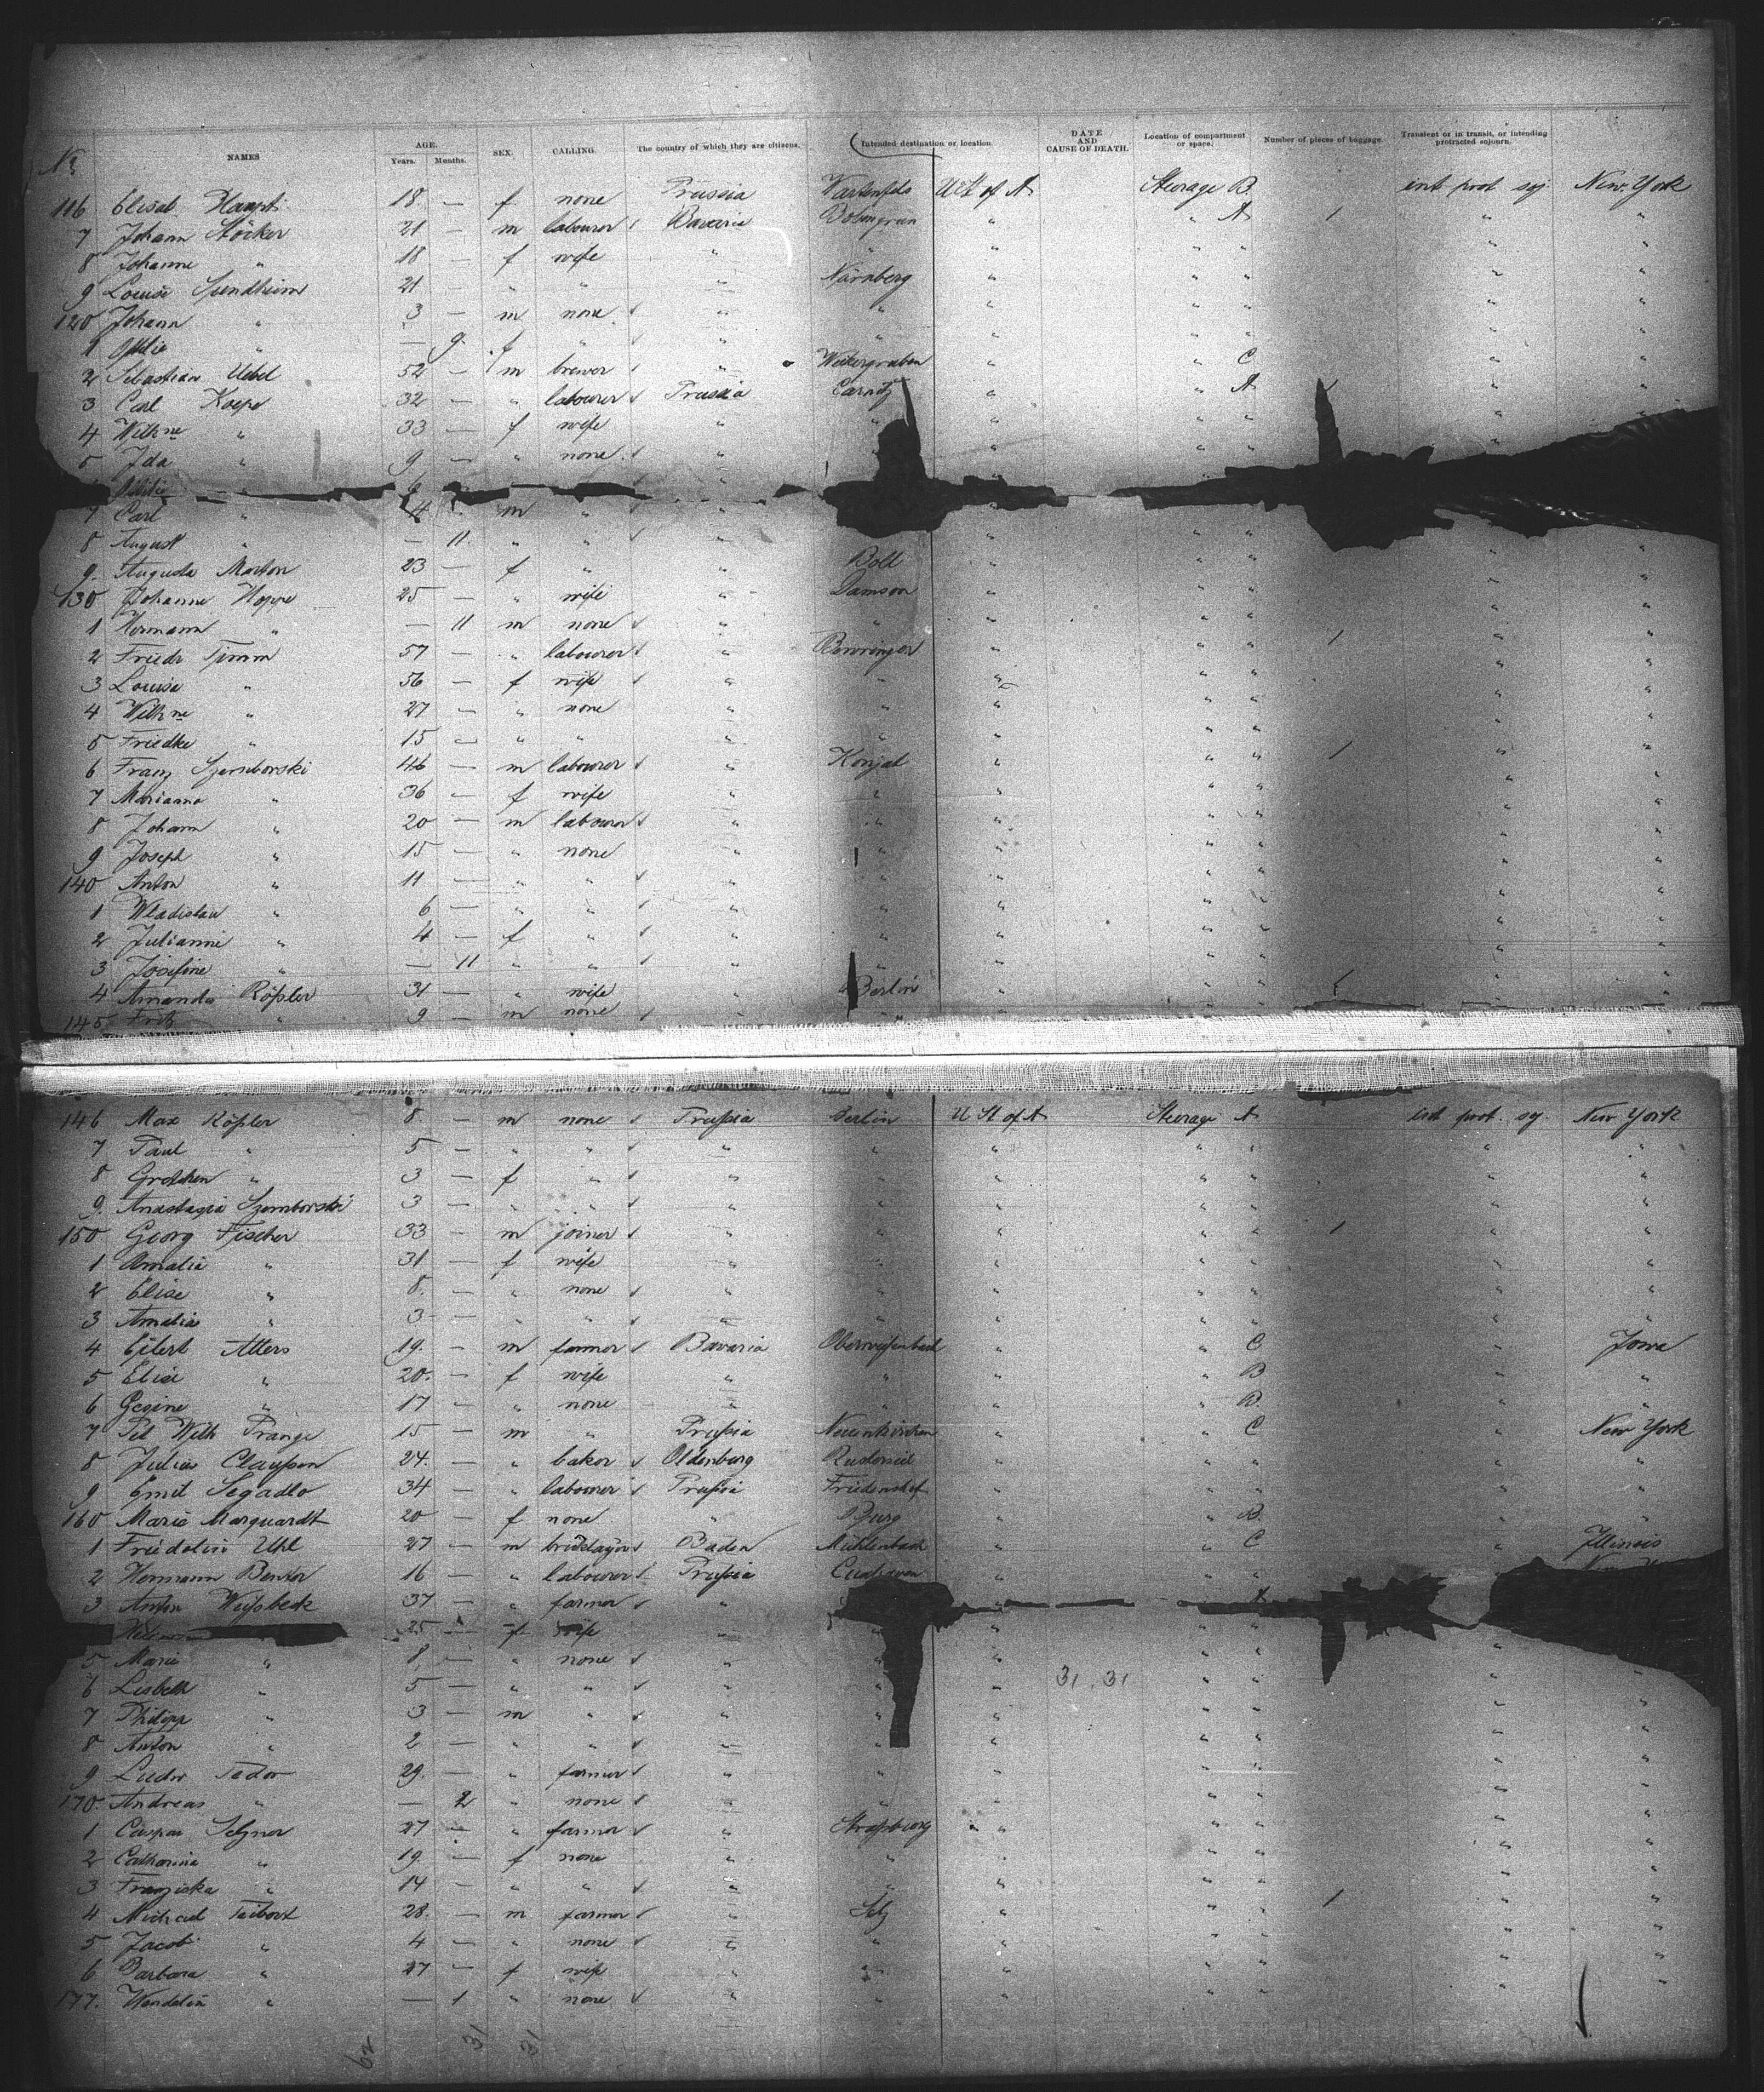 No NAMES AGE. Years. Months. SEX. CALLING. The country of which they are citizens. Intended destination or location DATE AND CAUSE OF DEATH. Location of compartment or space. Number of pieces of baggage. Transient or in transit, or intending protracted sojourn.
116 Elisab. Haupt 18 — f none Prussia Wartenfels U St of A Steerage B int prot soj New York
7 Johann Stöcker 21 — m labourer Bavaria " " A 1 " "
8 Johanne " 18 — f wife " " " " " " "
9 Louise 21 — " " " Nürnberg " " " " "
120 Johann " 3 — m none " " " " " " "
1 " — 9 f " " " " " " " "
2 Sebastian Uebel 52 — m brewer " " " C " "
3 Carl Koepe 32 — " labourer Prussia Carnitz " " A " "
4 Wilhne " 33 — f wife " " " " "
5 Ida " 9 — " none "
6
7 Carl " 4 m " " "
8 August " — 11 " " " " " " " "
9 Augusta Marton 23 — f " " Boll " " " " "
130 Johanne Hoppe 25 — " wife " " " " " "
1 Hermann " — 11 m none " " " " " 1 " "
2 Friedr Timm 57 — " labourer " " " " " "
3 Louise " 56 — f wife " " " " " " "
4 Wilhne " 27 — " none " " " " " " "
5 Friedke " 15 — " " " " " " " " "
6 Franz Szemborski 46 — m labourer " " " " 1 " "
7 Marianna " 36 — f wife " " " " " " "
8 Johann " 20 — m labourer " " " " " " "
9 Joseph " 15 — " none " " " " " " "
140 Anton " 11 — " " " " " " " " "
1 Wladislaw " 6 — " " " " " " " " "
2 Julianne " 4 — f " " " " " " " "
3 Josefine " — 11 " " " " " " " " "
4 Amanda Rößler 31 — " wife " Berlin " " " " "
145 Fritz " 9 — m none " " " " " " "
146 Max Rößler 8 — m none Prußia Berlin U St of A Steerage A int prot. soj. New York
7 Paul " 5 — " " " " " " " " "
8 Gretchen " 3 — f " " " " " " " "
9 Anastazia Szemborski 3 — " " " " " " " " "
150 Georg Fischer 33 — m joiner " " " " " 1 " "
1 Amalie " 31 — f wife " " " " " " "
2 Elise " 8 — " none " " " " " " "
3 Amalia " 3 — " " " " " " " " "
4 Eilert Atters 19 — m farmer Bavaria " " C " Iowa
5 Elise " 20 — f wife " " " " B " "
6 Gesine " 17 — " none " " " " B " "
7 Wilh Prange 15 — m " Prußia Neuenkirchen " " C " New York
8 Julius Claußen 24 — " baker Oldenburg " " " " "
9 Emil Segadlo 34 — " labourer Prußia Friedenshof " " " " "
160 Marie Marquardt 20 — f none " Burg " " B " "
1 Fridolin Uhl 27 — m bricklayer Baden Mühlenbach " " C " Illinois
2 Hermann 16 — " labourer Prußia Cuxhaven " " " "
3 Anton Weißbeck 37 — " farmer "
25 — f wife " " " " "
5 Marie " 8 — " none " " " " "
6 Lisbeth " 5 — " " " " " 31 . 31 " " " "
7 Philipp " 3 — m " " " " " " " "
8 Anton " 2 — " " " " " " " " "
9 Ludw 29 — " farmer " " " " " " "
170 Andreas " — 2 " none " " " " " " "
1 Caspar Selzner 27 — " farmer " Straßburg " " " " "
2 Catharina " 19 — f none " " " " " " "
3 Franziska " 14 — " " " " " " " " "
4 Michael 28 — m farmer " Selz " " " 1 " "
5 Jacob " 4 — " none " " " " " " "
6 Barbara " 27 — f wife " " " " " " "
177 Wendelin " — 1 " none " " " " " "
62 31 31